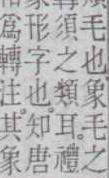 須毛也象毛之
轉須之類耳禮
象形字也知𠱾
爲轉注其象